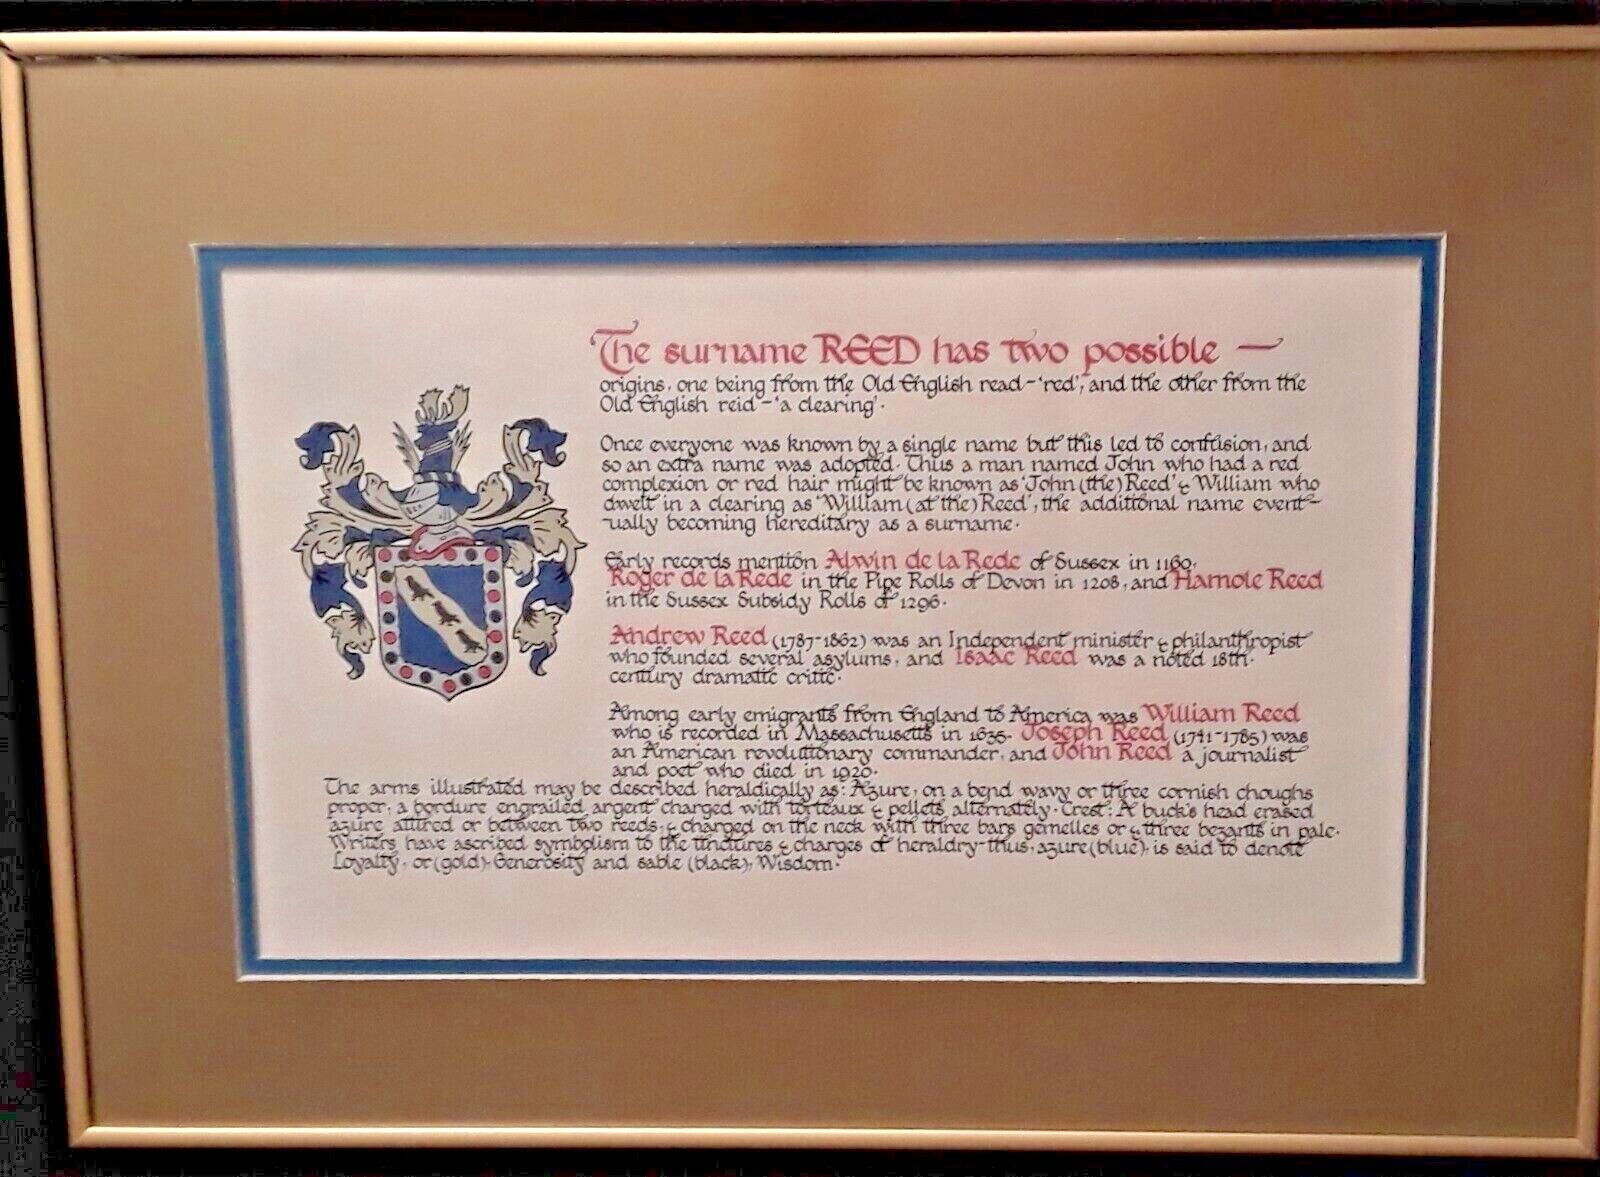 The surname REED has two possible —
origins, one being from the Old English read-'red', and the other from the
Old English reid-'a clearing'.
Once everyone was known by a single name but this led to confusion, and
so an extra name was adopted. Thus a man named John who had a red
complexion or red hair might be known as 'John (the) Reed' & William who
dwelt in a clearing as 'William (at the) Reed', the additional name event-
-ually becoming hereditary as a surname.
Early records mention Alwin de la Rede of Sussex in 1160,
Roger de la Rede in the Pipe Rolls of Devon in 1208, and Hamole Reed
in the Sussex Subsidy Rolls of 1296.
Andrew Reed (1787-1862) was an Independent minister & philanthropist
who founded several asylums, and Isaac Reed was a noted 18th.
century dramatic critic.
Among early emigrants from England to America was William Reed
who is recorded in Massachusetts in 1635. Joseph Reed (1741-1785) was
an American revolutionary commander, and John Reed a journalist
and poet who died in 1920.
The arms illustrated may be described heraldically as: Azure, on a bend wavy or three cornish choughs
proper, a bordure engrailed argent charged with torteaux & pellets alternately. Crest: A buck's head erased
azure attired or between two reeds, & charged on the neck with three bars gemelles or & three bezants in pale.
Writers have ascribed symbolism to the tinctures & charges of heraldry-thus, azure (blue), is said to denote
Loyalty, or (gold), Generosity and sable (black), Wisdom.